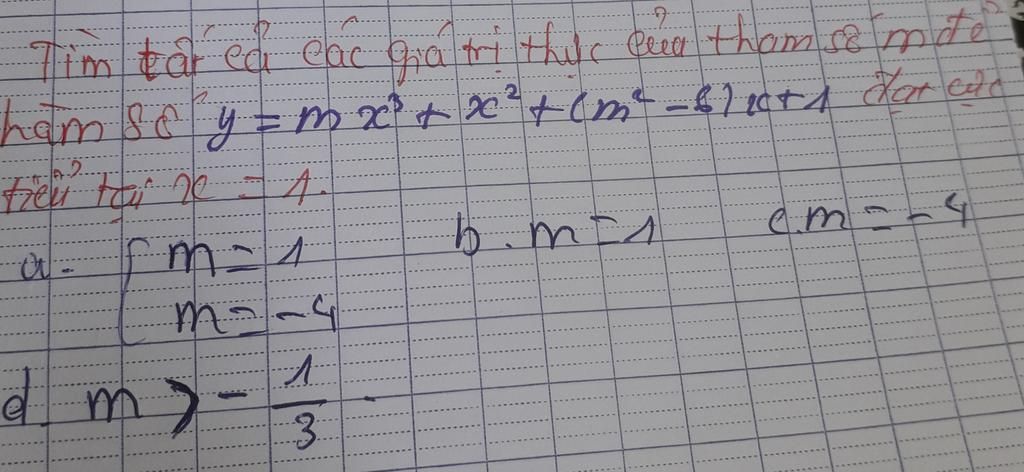 Tìm tất cả các giá trị thực của tham số m để
hàm số y = mx³ + x² + (m² - 6)x + 1 đạt cực
tiểu tại x = 1.
a. [ m = 1 b. m = 1 c. m = -4
m = -4
d. m > - 1/3.